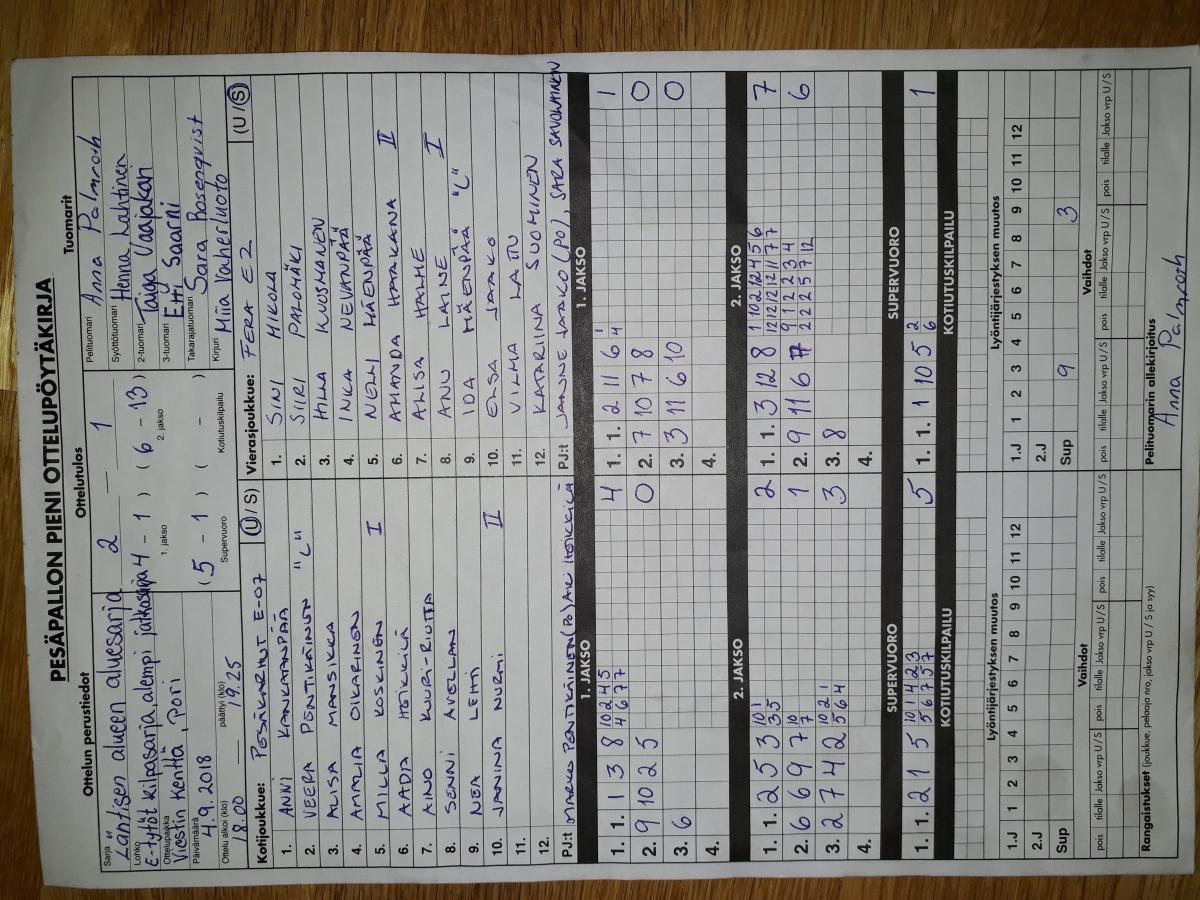 PESÄPALLON PIENI OTTELUPÖYTÄKIRJA
Ottelun perustiedot
Ottelutulos
Tuomarit
Sarja Läntisen alueen aluesarja
Lohko E-tytöt kilpasarja, alempi jatkosarja
Ottelupaikka Viestin kenttä, Pori
Päivämäärä 4.9.2018
Ottelu alkoi (klo) 18.00
päättyi (klo) 19.25
2 – 1
4 – 1 ) ( 6 – 13 )
1. jakso 2. jakso
( 5 – 1 ) ( – )
Supervuoro Kotiutuskilpailu
Pelituomari Anna Palmroth
Syöttötuomari Henna Lahtinen
2-tuomari Taiga Vaajakari
3-tuomari Etti Saarni
Takarajatuomari Sara Rosenqvist
Kirjuri Miia Vaherluoto
Kotijoukkue: PESÄKARHUT E-07 (U/S)
1. ANNI KANKAANPÄÄ
2. VEERA PENTIKÄINEN "L"
3. ALISA MANSIKKA
4. AMALIA OIKARINEN
5. MILLA KOSKINEN I
6. AADA HÖIKKILÄ
7. AINO KUURI-RIUTTA
8. SENNI AVELLAN
9. NEA LEHTI
10. JANINA NURMI II
11.
12.
PJ:t MARKO PENTIKÄINEN (PO) AKI HÖIKKILÄ
Vierasjoukkue: FERA E2 (U/S)
1. SINI MIKOLA
2. SIIRI PALOMÄKI
3. HILLA KUUSKANEN
4. INKA NEVANPÄÄ
5. NELLI MÄENPÄÄ
6. AMANDA HAAKANA II
7. ALISA HALME
8. ANU LAINE I
9. IDA MÄENPÄÄ "L"
10. ELSA JAAKO
11. VILMA LATU
12. KATARIINA SUOMINEN
PJ:t JANNE JAAKO (PO), SARA SAVOLAINEN
1. JAKSO 1. JAKSO
1. 1. 1 3 8 10 2 4 5 4 6 7 7 4
2. 9 10 2 5 0
3. 6
4.
1. 1. 2 11 6 1 4 1
2. 7 10 7 8 0
3. 3 11 6 10 0
4.
2. JAKSO 2. JAKSO
1. 1. 2 5 3 10 1 3 5 2
2. 6 6 9 7 10 7 1
3. 2 7 4 2 10 2 1 5 6 4 3
4.
1. 1. 3 12 8 1 10 2 12 12 4 5 6 12 12 12 12 11 7 7 7
2. 9 11 6 9 1 2 2 3 4 2 2 5 7 12 6
3. 8
4.
SUPERVUORO SUPERVUORO
1. 1. 2 1 5 10 1 4 2 3 5 6 7 5 7 5
1. 1. 1 10 5 2 6 1
KOTIUTUSKILPAILU KOTIUTUSKILPAILU
Lyöntijärjestyksen muutos
1.J 1 2 3 4 5 6 7 8 9 10 11 12
2.J
Sup
Lyöntijärjestyksen muutos
1.J 1 2 3 4 5 6 7 8 9 10 11 12
2.J
Sup 9 3
Vaihdot
pois tilalle Jakso vrp U/S pois tilalle Jakso vrp U/S pois tilalle Jakso vrp U/S
Vaihdot
pois tilalle Jakso vrp U/S pois tilalle Jakso vrp U/S pois tilalle Jakso vrp U/S
Rangaistukset (joukkue, pelaaja nro, jakso vrp U / S ja syy)
Pelituomarin allekirjoitus
Anna Palmroth